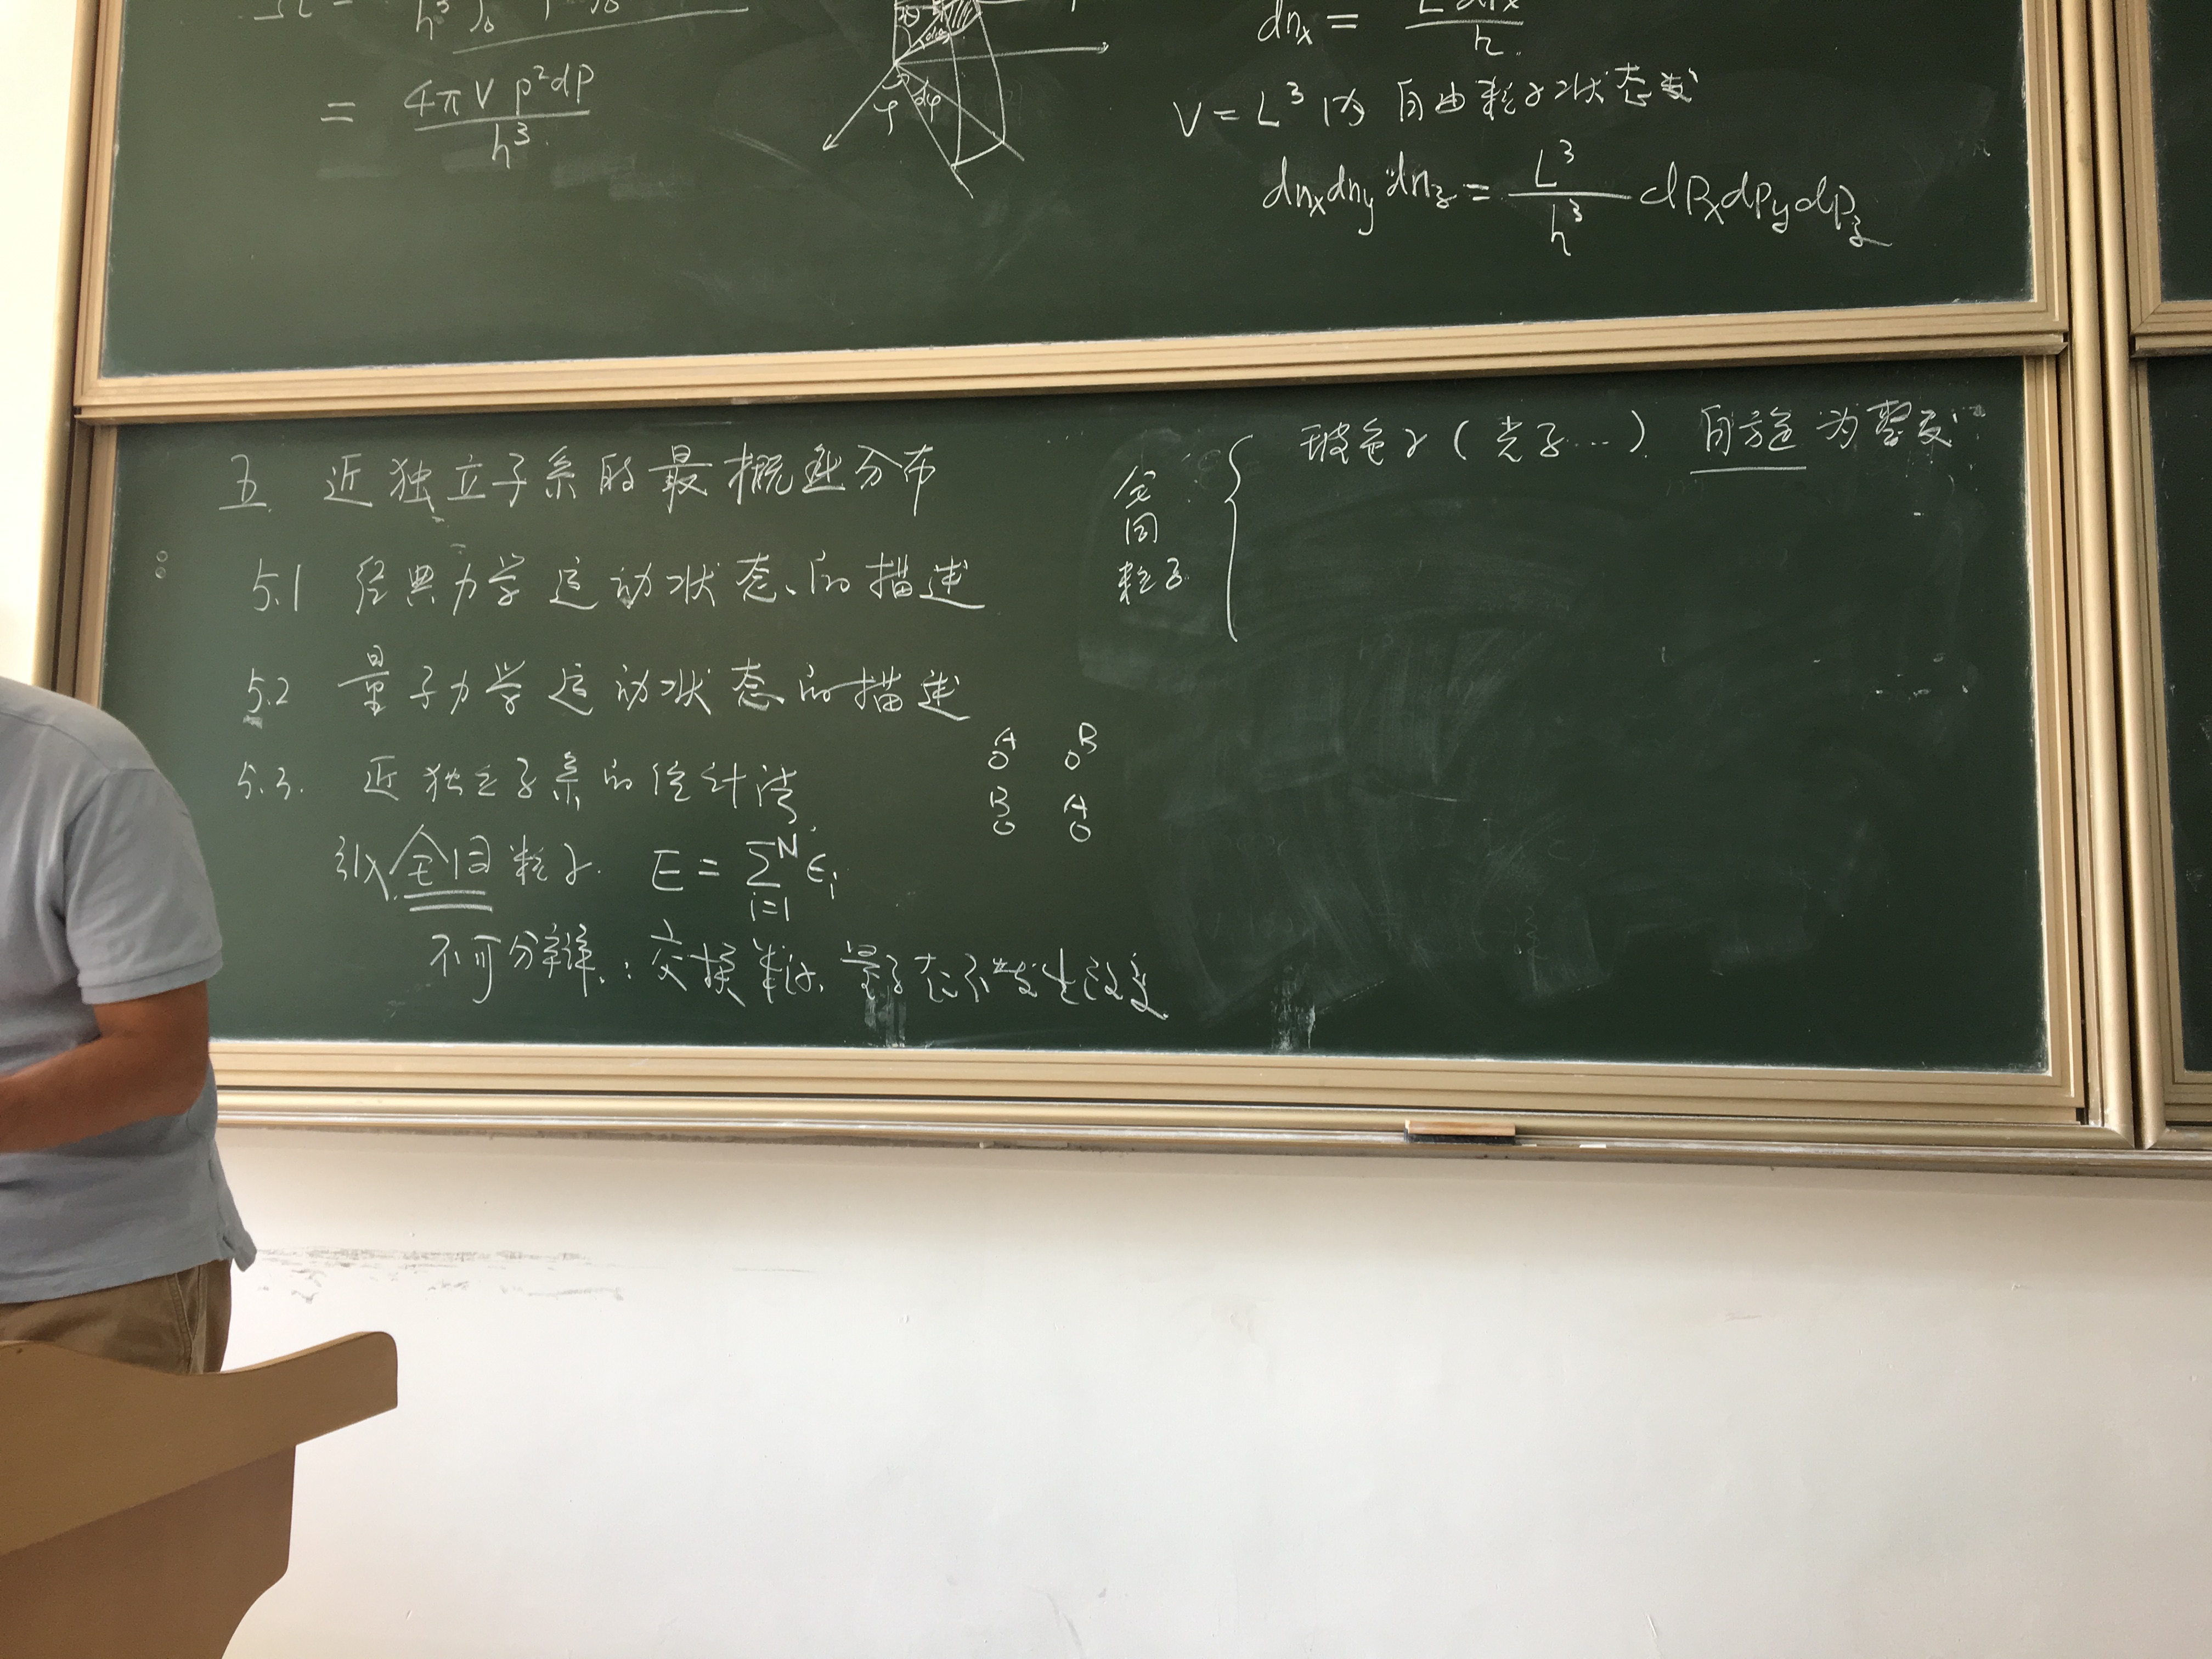 = 4πV p²dp / h³
θ dθ
φ dφ
dnₓ = L dpₓ / h
V = L³ 内 自由粒子状态数
dnₓdn_y dn_z = L³ / h³ dPₓdP_ydP_z
五 近独立子系的最概然分布
5.1 经典力学运动状态的描述
5.2 量子力学运动状态的描述
5.3. 近独立子系的统计法
引入全同粒子. E = Σᵢ₌₁ᴺ εᵢ
不可分辨: 交换粒子, 量子态不发生改变
A B
B A
全同粒子 { 玻色子 (光子…) 自旋为整数